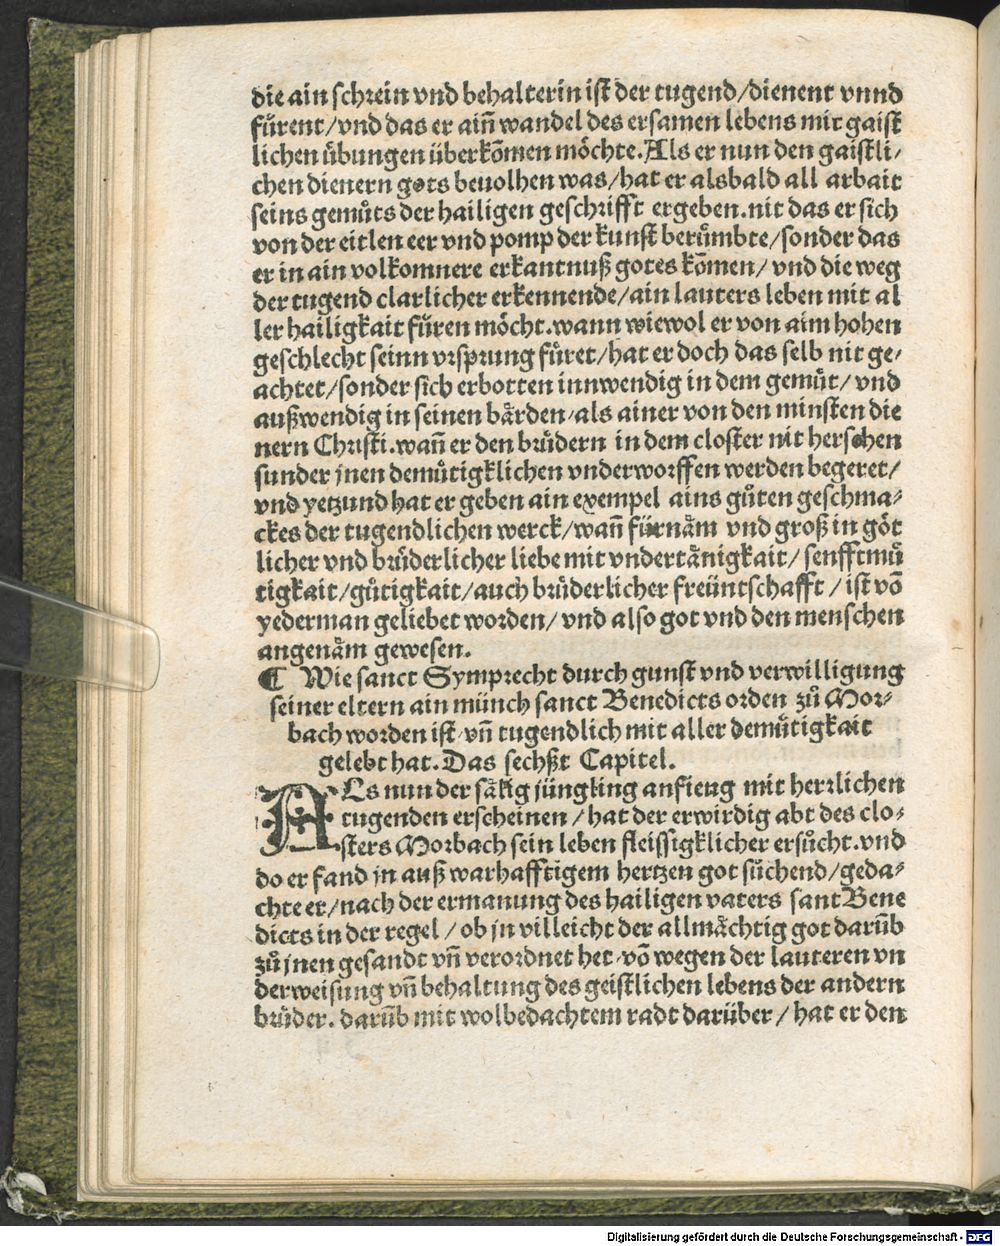 die ain schrein vnd behalterin ist der tugend/dienent vnnd
fůrent/vnd das er aiñ wandel des ersamen lebens mit gaist
lichen übungen überkõmen möchte.Als er nun den gaistli/
chen dienern gots beuolhen was/hat er alsbald all arbait
seins gemůts der hailigen geschrifft ergeben.nit das er sich
von der eitlen eer vnd pomp der kunst berůmbte/sonder das
er in ain volkomnere erkantnuß gotes kõmen/ vnd die weg
der tugend clarlicher erkennende/ain lauters leben mit al
ler hailigkait fůren möcht.wann wiewol er von aim hohen
geschlecht seinn vrsprung fůret/hat er doch das selb nit ge/
achtet/sonder sich erbotten innwendig in dem gemůt/ vnd
außwendig in seinen bärden/als ainer von den minsten die
nern Christi.wañ er den brůdern in dem closter nit herschen
sunder jnen demůtigklichen vnderworffen werden begeret/
vnd yetzund hat er geben ain exempel ains gůten geschma-
ckes der tugendlichen werck/wañ fürnäm vnd groß in göt
licher vnd brůderlicher liebe mit vndertänigkait/ senfftmů
tigkait/gůtigkait/auch brůderlicher freüntschafft / ist võ
yederman geliebet worden/ vnd also got vnd den menschen
angenäm gewesen.
¶ Wie sanct Symprecht durch gunst vnd verwilligung
seiner eltern ain münch sanct Benedicts orden zů Mor-
bach worden ist/vñ tugendlich mit aller demůtigkait
gelebt hat.Das sechßt Capitel.
ALs nun der sälig jüngling anfieng mit herrlichen
tugenden erscheinen / hat der erwirdig abt des clo-
sters Morbach sein leben fleissigklicher ersůcht.vnd
do er fand jn auß warhafftigem hertzen got sůchend/geda-
chte er/nach der ermanung des hailigen vaters sant Bene
dicts in der regel / ob jn villeicht der allmächtig got darũb
zů jnen gesandt vñ verordnet het/võ wegen der lauteren vn
derweisung vñ behaltung des geistlichen lebens der andern
brůder. darũb mit wolbedachtem radt darüber / hat er den
Digitalisierung gefördert durch die Deutsche Forschungsgemeinschaft - DFG